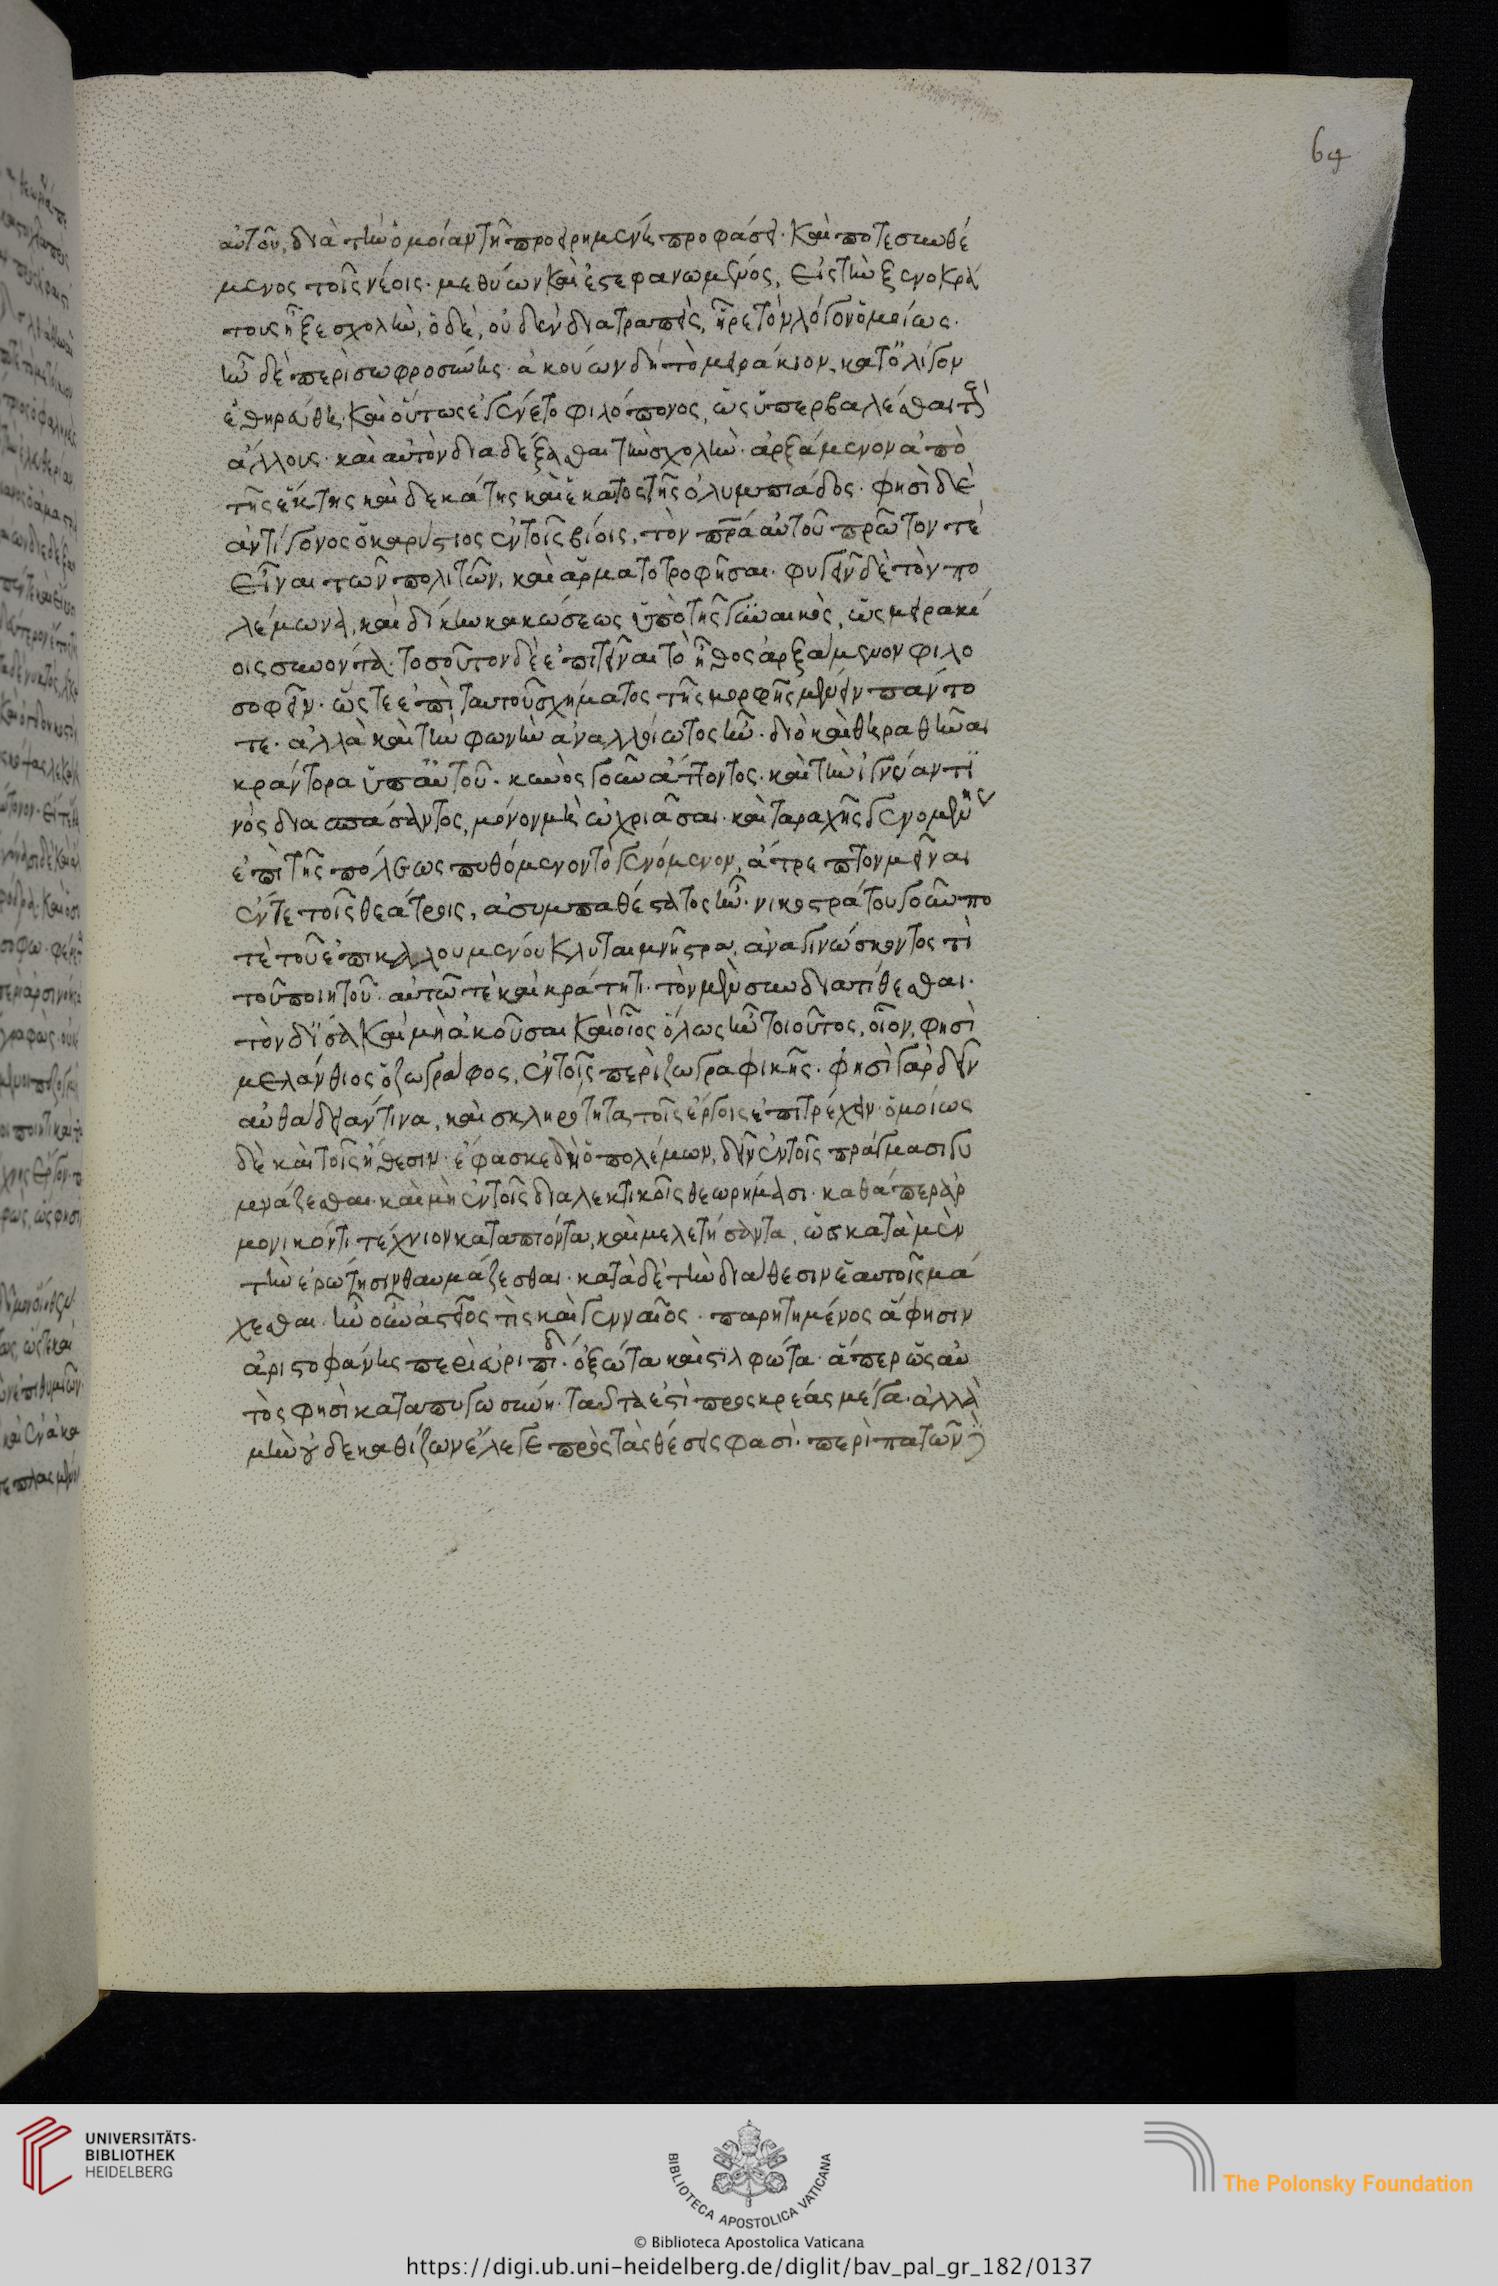 64
αὐτοῦ, διὰ τὴν ὁμοίαν τῆ προειρημένη προφάσει. καὶ ποτὲ συνθέ
μενος τοῖς νέοις. μεθύων καὶ ἐστεφανωμένος, εἰς τὴν ξενοκρά
τους ἦξε σχολήν, ὁ δὲ, οὐδὲν διατραπεὶς, ἦρε τὸν λόγον ὁμοίως.
ἦν δὲ περὶ σωφροσύνης. ἀκούων δὴ τὸ μειράκιον, κατ' ὀλίγον
ἐθηράθη. καὶ οὕτως ἐγένετο φιλόπονος, ὡς ὑπερβαλέσθαι τοὺς
ἄλλους. καὶ αὐτὸν διαδέξασθαι τὴν σχολὴν. ἀρξάμενον ἀπὸ
τῆς ἕκτης καὶ δεκάτης καὶ ἑκατοστῆς ὀλυμπιάδος. φησὶ δὲ
ἀντίγονος ὁ καρύστιος ἐν τοῖς βίοις. τὸν πρα αὐτοῦ πρῶτον τε
εἶναι τῶν πολιτῶν, καὶ ἁρματοτροφῆσαι. φυγεῖν δὲ τὸν πο
λέμωνα, καὶ δίκην κακώσεως ὑπὸ τῆς γυναικὸς, ὡς μειρακί
οις συνοντα. τοσοῦτον δὲ ἐπιτεῖναι τὸ ἦθος ἀρξάμενον φιλο
σοφεῖν. ὥστε ἐπὶ ταυτοῦ σχήματος τῆς μορφῆς μένειν πάντο
τε. ἀλλὰ καὶ τὴν φωνὴν ἀναλλοίωτος ἦν. διὸ καὶ θηραθῆναι
κράντορα ὑπ' αὐτοῦ. κυνὸς γοῦν λυττῶντος. καὶ τὴν ἰγνύαν τι
νὸς διασπάσαντος, μόνον μὴ ὠχριᾶσαι. καὶ ταραχῆς γενομένης
ἐπὶ τῆς πόλεως πυθόμενον τὸ γενόμενον, ἄτρεπτον μεῖναι
ἔν τε τοῖς θεάτροις, ἀσυμπαθέστατος ἦν. νικοστράτου γοῦν πο
τὲ τοῦ ἐπικαλουμένου κλυταιμνῆστρα, ἀναγινώσκοντος τὶ
τοῦ ποιητοῦ. αὐτῶ τὲ καὶ κράτητι. τὸν μὲν συνδιατίθεσθαι.
τὸν δ' ἴσα καὶ μὴ ἀκοῦσαι καὶ οἷος ὅλως ἦν τοιοῦτος, οἷον, φησὶ
μελάνθιος ὁ ζωγράφος, ἐν τοῖς περὶ ζωγραφικῆς. φησὶ γὰρ δεῖν
αὐθάδειαν τινα, καὶ σκληρότητα τοῖς ἔργοις ἐπιτρέχειν. ὁμοίως
δὲ καὶ τοῖς ἤθεσιν. ἔφασκε δὴ ὁ πολέμων, δεῖν ἐν τοῖς πράγμασι γυ
μνάζεσθαι. καὶ μὴ ἐν τοῖς διαλεκτικοῖς θεωρήμασι. καθάπερ ἁρ
μονικόν τι τέχνιον καταπιόντα, καὶ μελετήσαντα, ὡς κατὰ μὲν
τὴν ἐρώτησιν θαυμάζεσθαι. κατὰ δὲ τὴν διάθεσιν ἑαυτοῖς μά
χεσθαι. ἦν οὖν ἀστεῖος τὶς καὶ γενναῖος. παρητημένος ἅ φησιν
ἀριστοφάνης περὶ εὐριπιδ. ὀξωτα καὶ σιλφωτα. ἅπερ ὡς αὐ
τὸς φησὶ καταπυγωσύνη. ταῦτα ἐστὶ προς κρέας μέγα. ἀλλὰ
μὴν οὐδὲ καθίζων ἔλεγε πρὸς τὰς θέσεις φασὶ. περιπατῶν δὲ
UNIVERSITÄTS-
BIBLIOTHEK
HEIDELBERG
BIBLIOTECA APOSTOLICA VATICANA
The Polonsky Foundation
© Biblioteca Apostolica Vaticana
https://digi.ub.uni-heidelberg.de/diglit/bav_pal_gr_182/0137